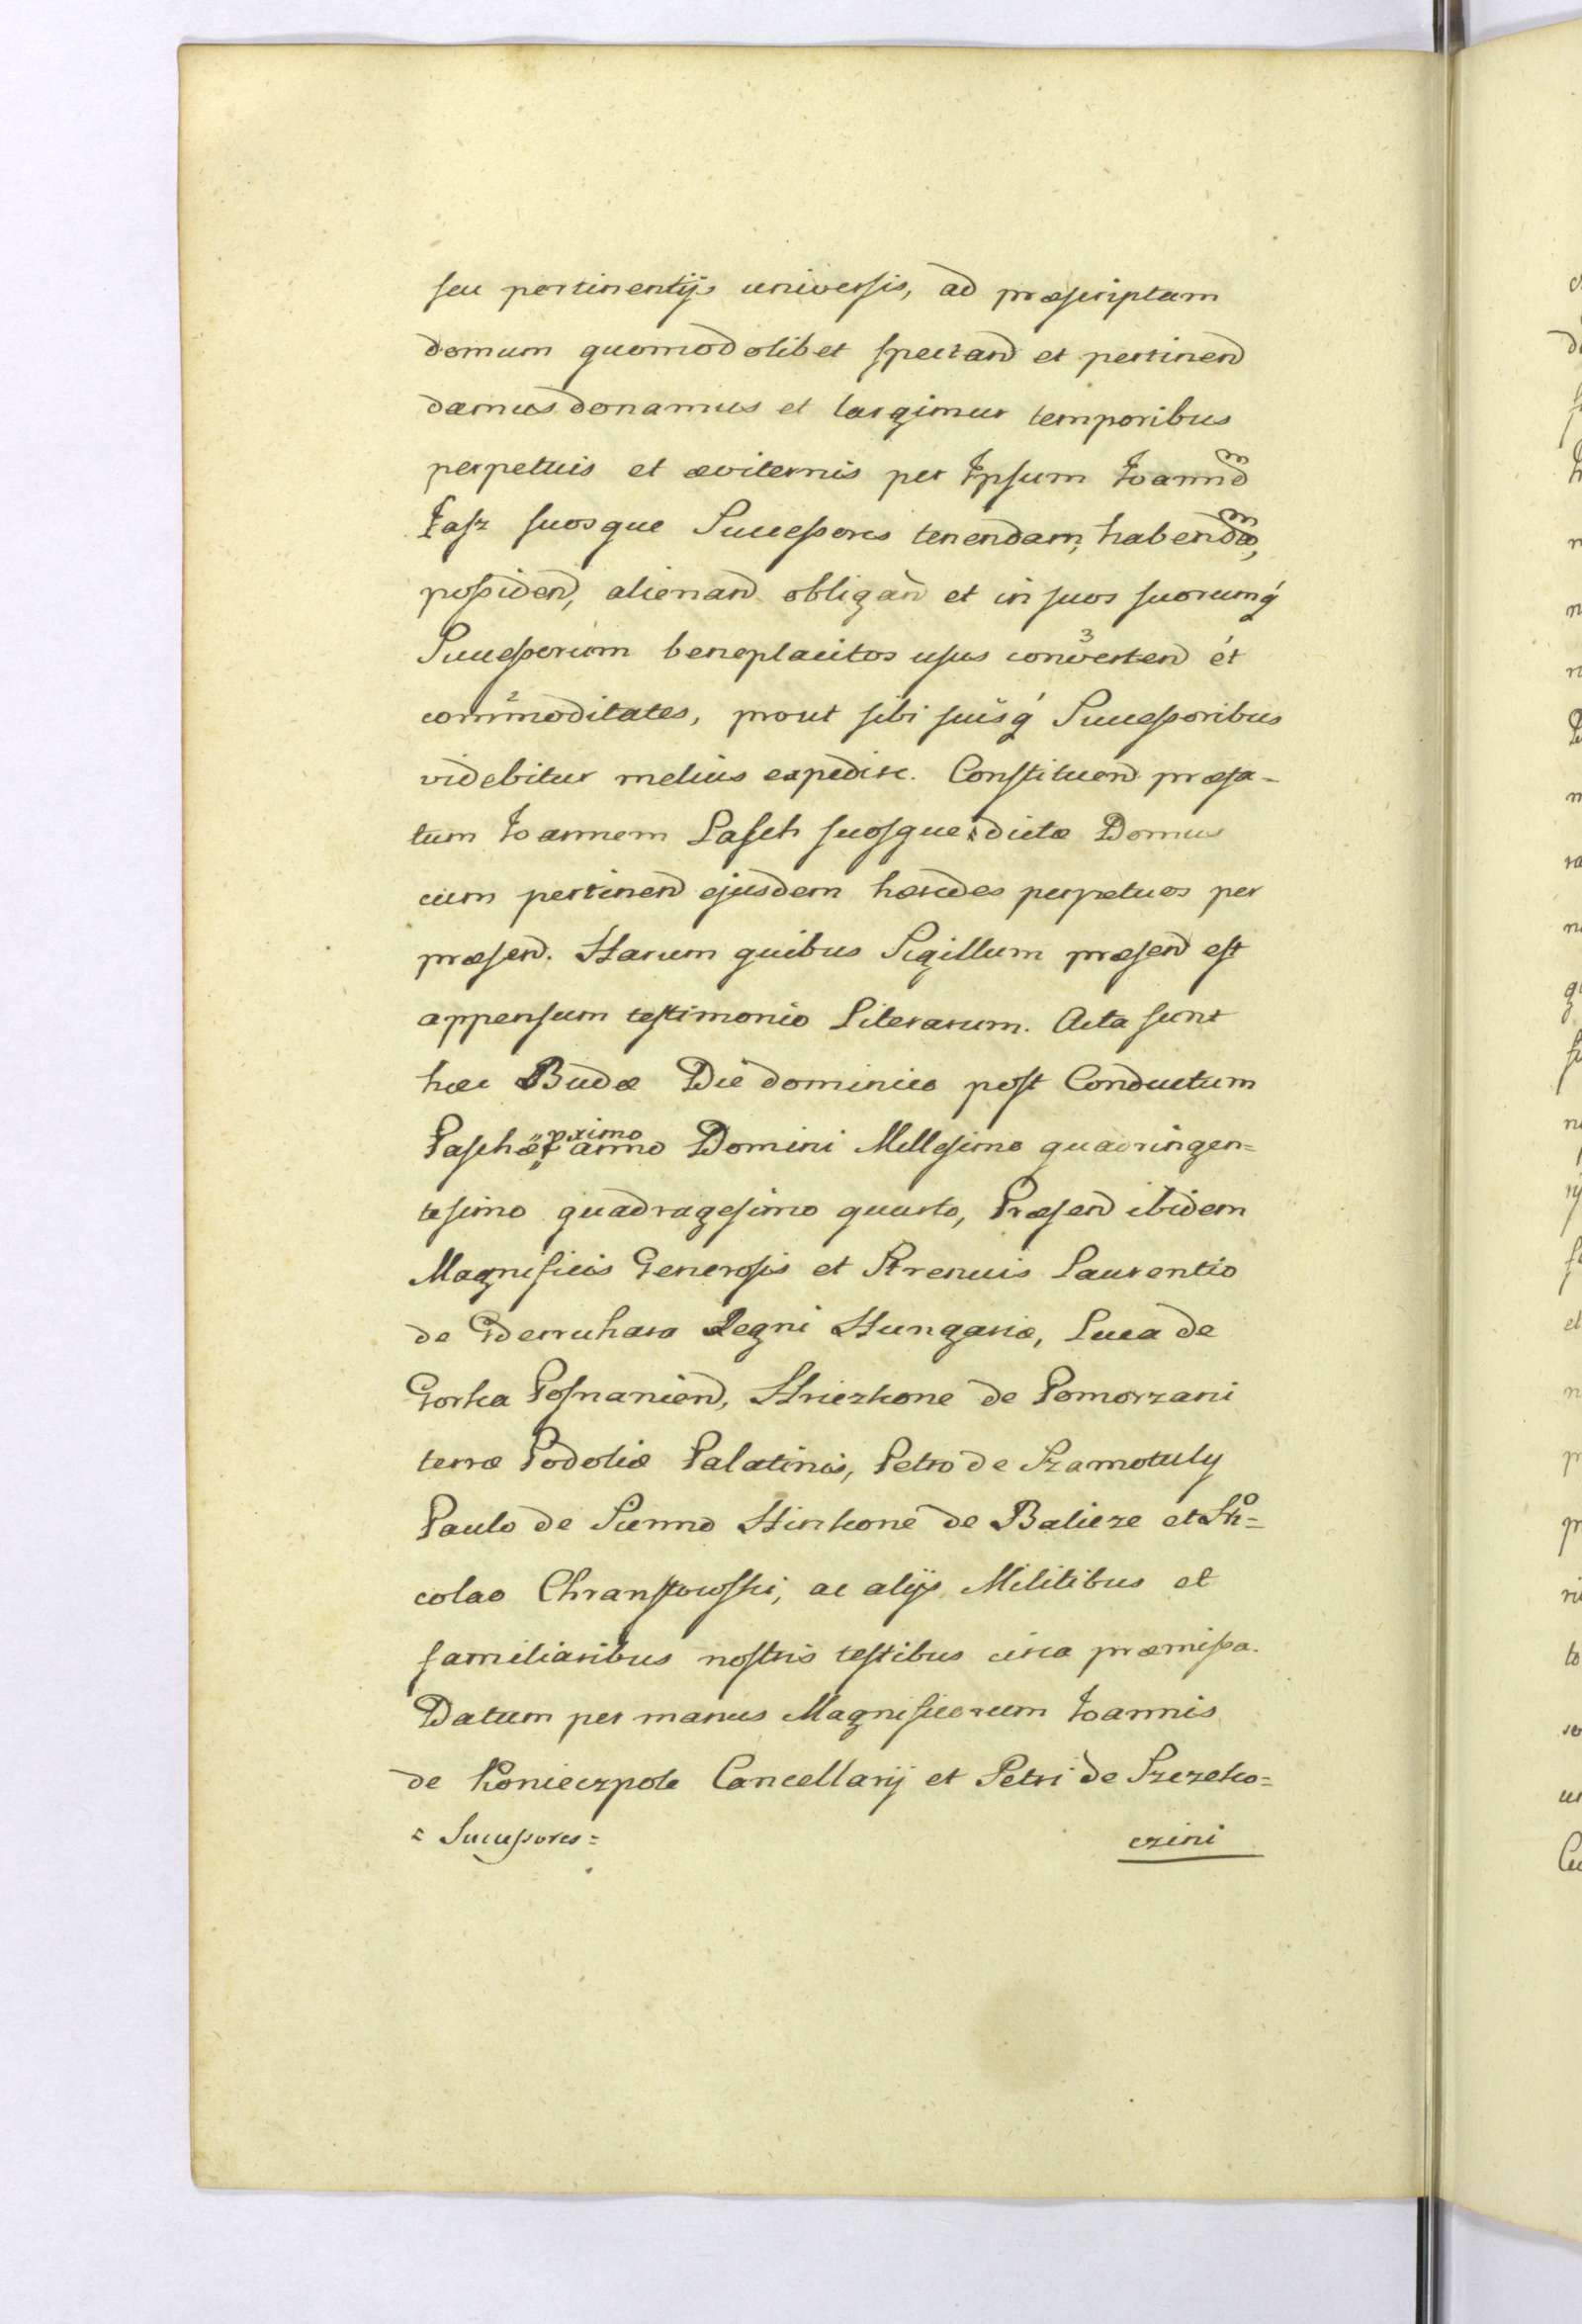 seu pertinentijs universis, ad præscriptam
domum quomodolibet spectand et pertinend
damus donamus et largimur temporibus
perpetuis et æviternis per Ipsum Joannem
Jasz suosque Successores tenendam, habendam,
possidend, alienand obligand et in suos suorumq́
Successorum beneplacitos usus ³convertend ét
²commoditates, prout sibi suisq́ Successoribus
videbitur melius expedire. Constituend præfa-
tum Joannem Lasch suosque = dictæ Domus
cum pertinend ejusdem hæredes perpetuos per
præsend. Harum quibus Sigillum præsend est
appensum testimonio Literarum. Acta sunt
hæc Budæ Die dominico post Conductum
Paschæ " proximo anno Domini Millesimo quadringen=
tesimo quadragesimo quarto, Præsend ibidem
Magnificis Generosis et Strenuis Laurentio
de Hederuhara Regni Hungariæ, Luca de
Gorka Posnaniend, Hriczkone de Pomorzani
terræ Podoliæ Palatinis, Petro de Szamotuly
Paulo de Sienno Hinkone de Balicze et Ni=
colao Chranstowski, ac alijs Militibus et
familiaribus nostris testibus circa præmissa.
Datum per manus Magnificorum Joannis
de Konieczpole Cancellarij et Petri de Szczeko=
= Successores =
czini